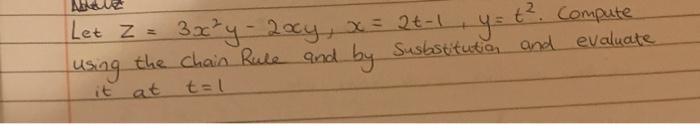 Let Z = 3x²y - 2xy, x = 2t-1, y = t². Compute
using the Chain Rule and by Susbstitution and evaluate
it at t=1